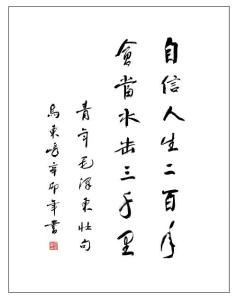 自信人生二百年
會當水击三千里
青年毛澤東壯句
辛卯年書